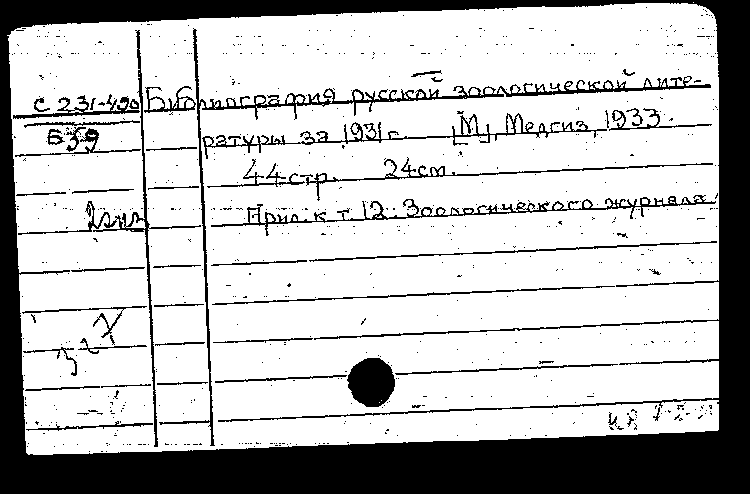 С 231-490 Библиография русской зоологической лите-
Б59 ратуры за 1931 г. [М], Медгиз, 1933.
44 стр. 24 см.
2 экз
Прил. к т. 12. Зоологического журнала
327